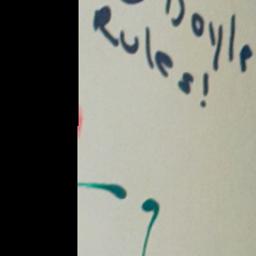 Doyle
Rules!